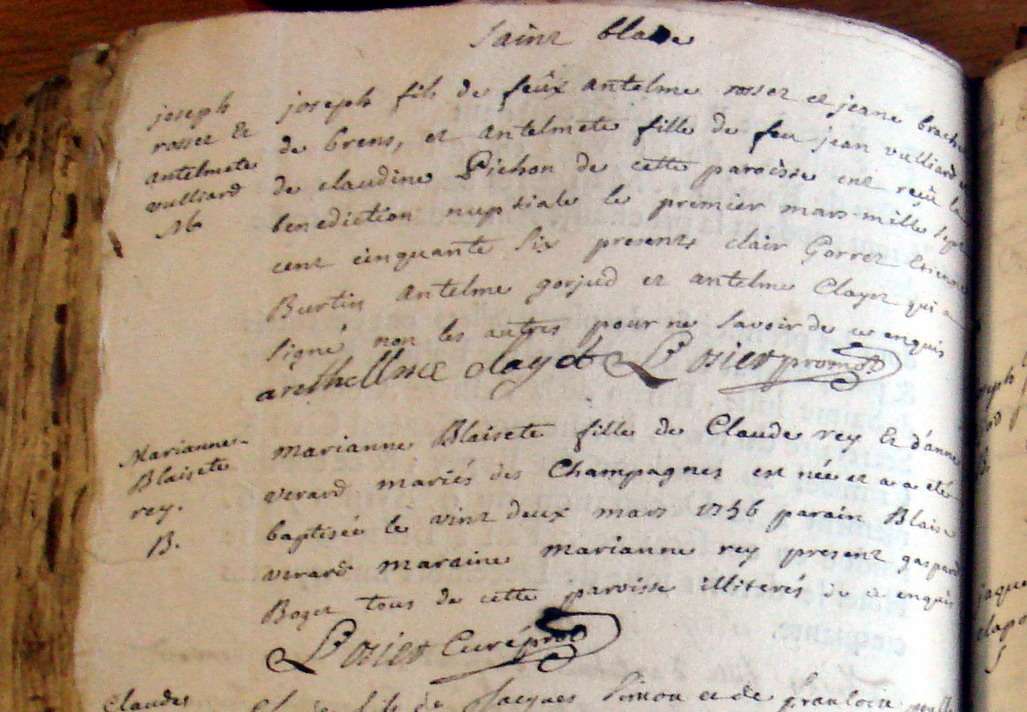 saint blaise
joseph
rosset et
antelmete
vulliard
M.
joseph fils de feûx antelme rosset et jeane
de brens, et antelmete fille de feu jean vulliard et
de claudine Pichon de cette paroisse ont reçû la
benediction nuptiale le premier mars mille sept
cent cinquante six presents clair Gorret Etienne
Burtin antelme gorjud et antelme Clayet qui a
signé non les autres pour ne savoir de ce enquis
anthellme clayet L'osier promot
Marianne
Blaisete
rey.
B.
marianne Blaisete fille de Claude rey et d'anne
verard mariés des Champagnes est née et a eté
baptisée le vint deux mars 1756 parain Blaise
verard maraine marianne rey present gaspard
Boget tous de cette paroisse illiterés de ce enquis
L'osier Curé promot
Claude
fils de Jacques Simon et de